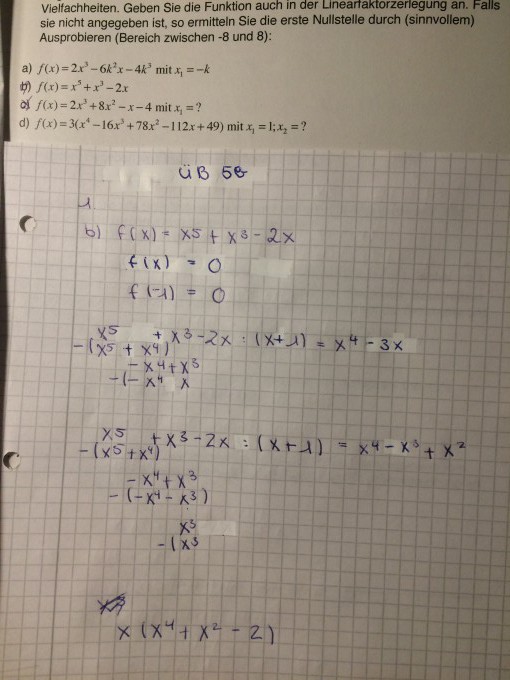 Vielfachheiten. Geben Sie die Funktion auch in der Linearfaktorzerlegung an. Falls
sie nicht angegeben ist, so ermitteln Sie die erste Nullstelle durch (sinnvollem)
Ausprobieren (Bereich zwischen -8 und 8):
a) f(x)=2x³−6k²x−4k³ mit x₁=−k
b) f(x)=x⁵+x³−2x
c) f(x)=2x³+8x²−x−4 mit x₁=?
d) f(x)=3(x⁴−16x³+78x²−112x+49) mit x₁=1; x₂=?
ÜB 5B
1.
b) f(x) = x5 + x3 - 2x
f(x) = 0
f(-1) = 0
x5 + x3 - 2x : (x+1) = x4 - 3x
-(x5 + x4)
- x4 + x3
-(- x4 x
x5 + x3 - 2x : (x+1) = x4 - x3 + x2
-(x5 + x4)
- x4 + x3
- (-x4 - x3)
x3
-(x3
x (x4 + x2 - 2)